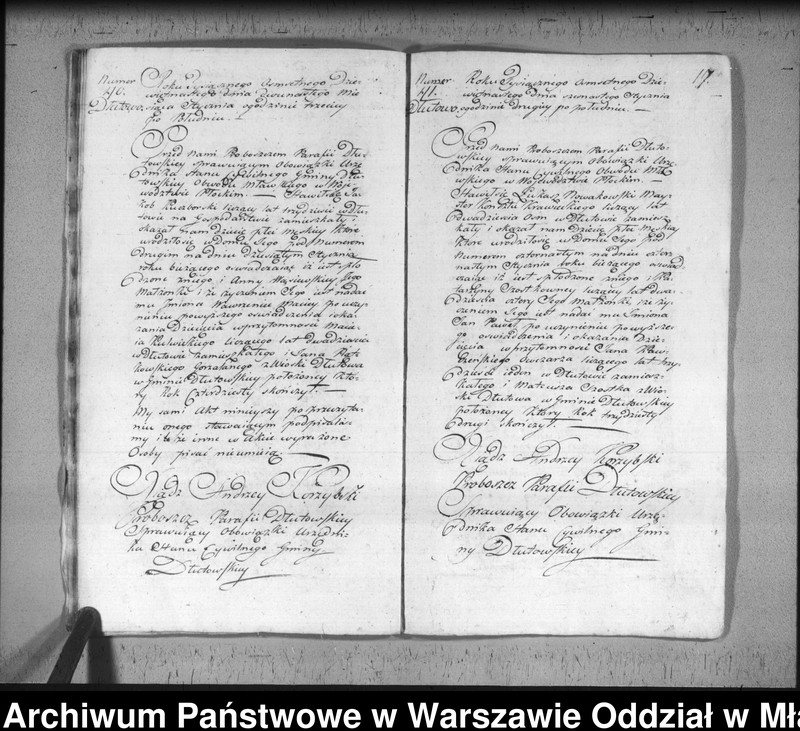 Numer
40.
Dłutowo
Roku Tysiącznego Osmsetnego Dzie-
więtnastego dnia dwunastego Mie-
siąca Stycznia o godzinie trzeciey
po Południu —
Przed Nami Proboszczem Parafii Dłu-
towskiey sprawuiącym Obowiązki Urzę-
dnika Stanu Cywilnego Gminy Dłu-
towskiey Obwodu Mławskiego w Woje-
wodztwie Płockim. — Stawił się Ja-
kob liczący lat trzydzieści w Dłu-
towie na Gospodarstwie zamieszkały i
okazał Nam dziecię płci Męskiey które
urodziło się w Domu Jego pod Numerem
drugim na dniu dziewiątym Stycznia
roku bieżącego oświadczaiąc iż iest spło-
dzone z niego i Anny Jego
Matzonki i że życzeniem Jego iest nadać
mu Imiona Wawrzeniec Maciey po uczy-
nieniu powyższego oświadczenia i oka-
zania Dziecięcia w przytomności Macie-
ia liczącego lat dwadzieścia
w Dłutowie zamieszkałego i Jana
kowskiego z Wioski Dłutowa
w Gminie Dłutowskiey położoney któ-
ry Rok Czterdziesty skończył. —
My sami Akt ninieyszy po przeczyta-
niu onego stawaiącym podpisaliś-
my iż te inne w Akcie wyrażone
Osoby pisać nieumieią —
Xiądz Andrzey Korzybski
Proboszcz Parafii Dłutowskiey
Sprawuiący Obowiązki Urzędni-
ka Stanu Cywilnego Gminy
Dłutowskiey
17.
Numer
41.
Dłutowo
Roku Tysiącznego Osmsetnego Dzie-
więtnastego Dnia Stycznia
o godzinie drugiey po południu. —
Przed Nami Proboszczem Parafii Dłuto-
wskiey sprawuiącym Obowiązki Urzę-
dnika Stanu Cywilnego Obwodu Mła-
wskiego w Woiewodztwie Płockim.
Stawił się Nowakowski May-
ster Krawiecki liczący lat
dwadzieścia Osm w Dłutowie zamiesz-
kały i okazał nam Dziecię płci Męskiey
które urodziło się w Domu Jego pod
Numerem czternastym na dniu czter-
nastym Stycznia roku bieżącego oświad-
czaiąc iż iest spłodzone z niego i Ka-
tarzyny Szostkowney liczącey lat dwa-
dzieścia cztery Jego Matżonki i że ży-
czeniem Jego iest nadać mu Imiona
Jan Paweł po uczynieniu powyższe-
go oświadczenia i okazania Dzie-
cięcia w przytomności Jana
Owczarza liczącego lat trzy-
dzieści ieden w Dłutowie zamiesz-
kałego i Mateusza Szostka z Wio-
ski Dłutowa w Gminie Dłutowskiey
położoney który Rok trzydziesty
drugi skończył —
Xiądz Andrzey Korzybski
Proboszcz Parafii Dłutowskiey
Sprawuiący Obowiązki Urzę-
dnika Stanu Cywilnego Gmi-
ny Dłutowskiey
Archiwum Państwowe w Warszawie Oddział w Mła